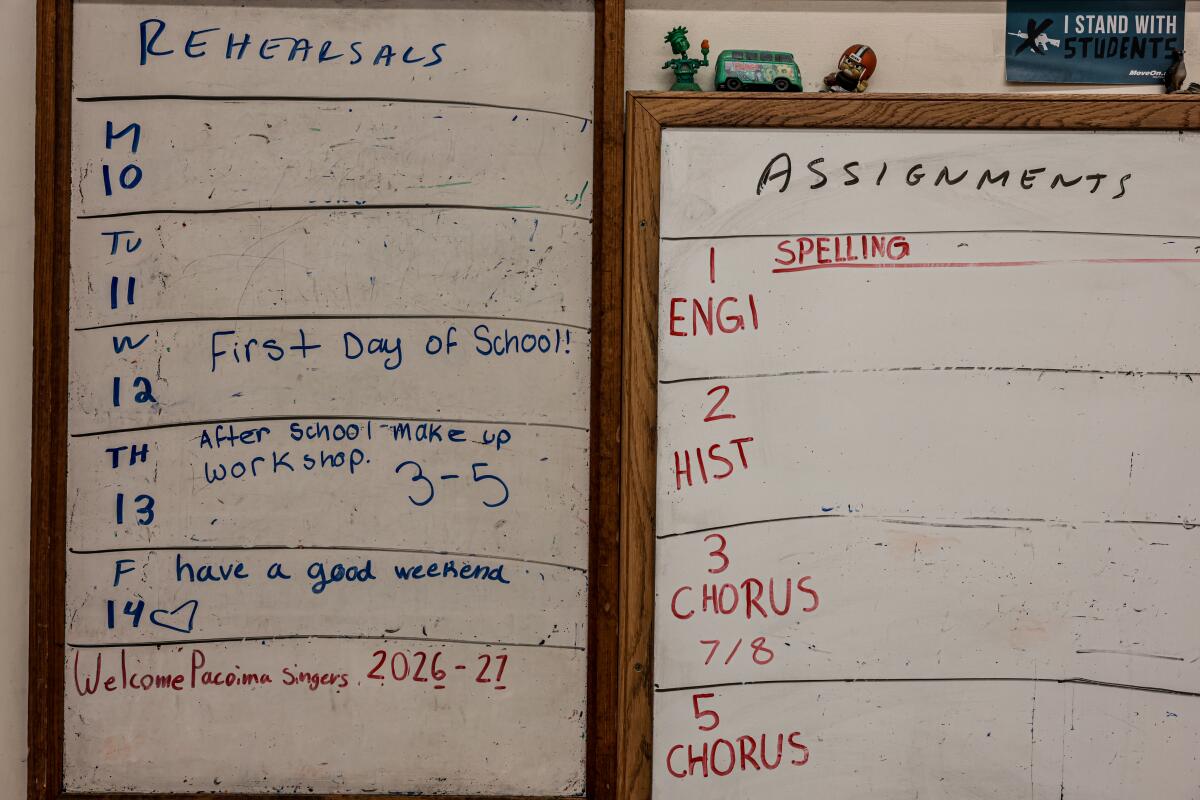 REHEARSALS
M
10
TU
11
W
First Day of School!
12
TH
After school make up
workshop.
3-5
13
F have a good weekend
14
Welcome Pacoima Singers 2026-27
I STAND WITH
STUDENTS
MoveOn
ASSIGNMENTS
1 SPELLING
ENG1
2
HIST
3
CHORUS
7/8
5
CHORUS